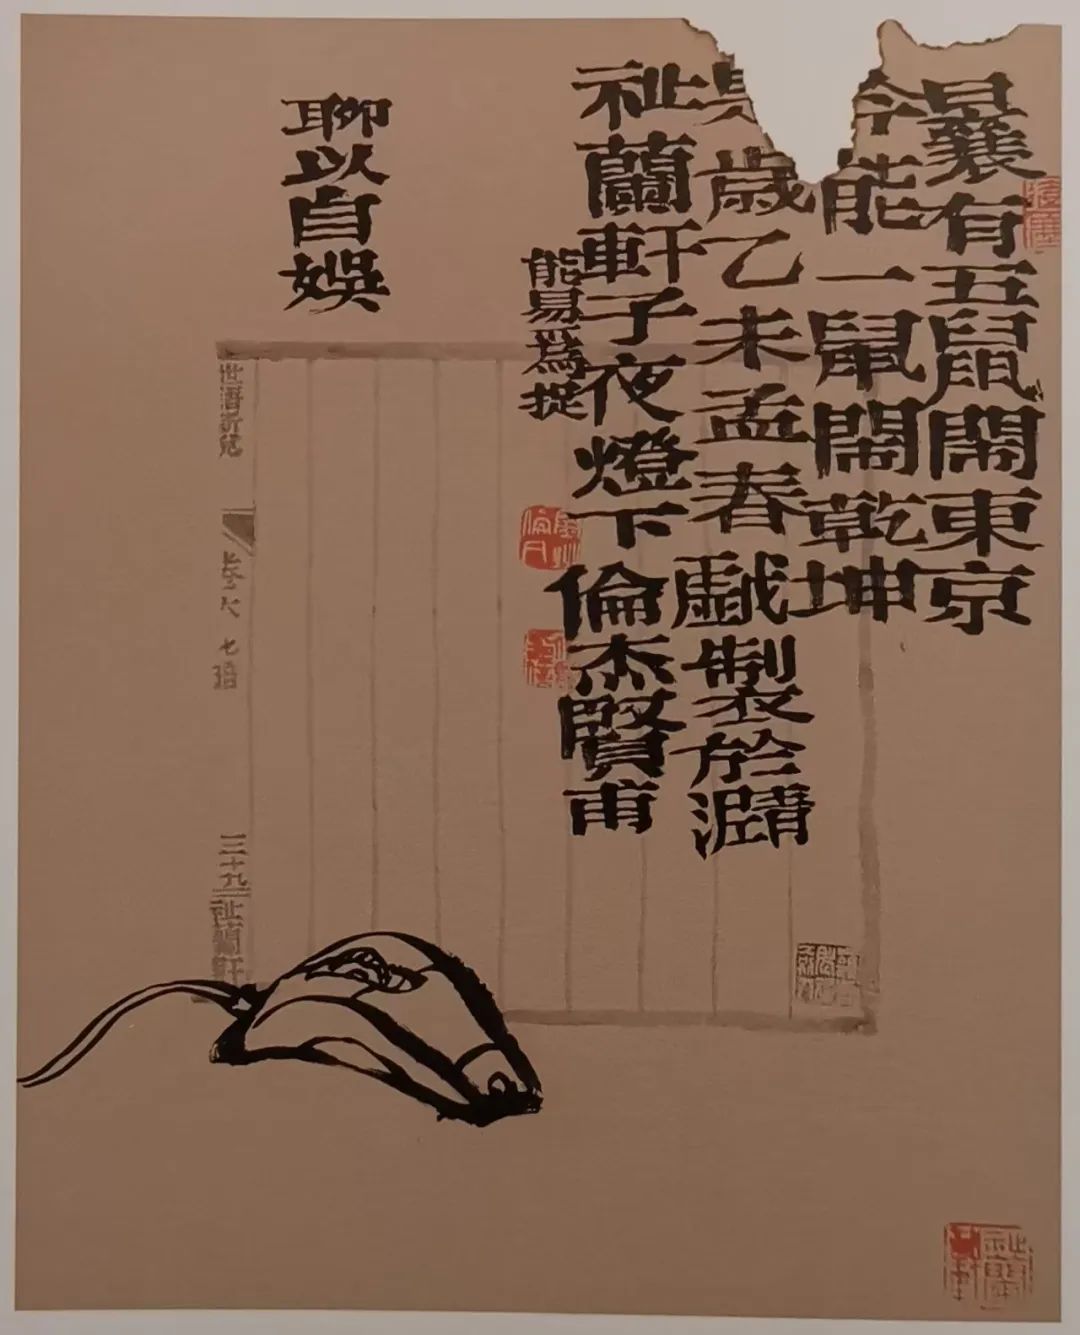 曩有五鼠鬧東京
今能一鼠鬧乾坤
是歲乙未孟春戲製於潤
祉蘭軒子夜燈下倫杰賢甫
能易爲捉
聊以自娛
卷六
七
三十九
祉蘭軒